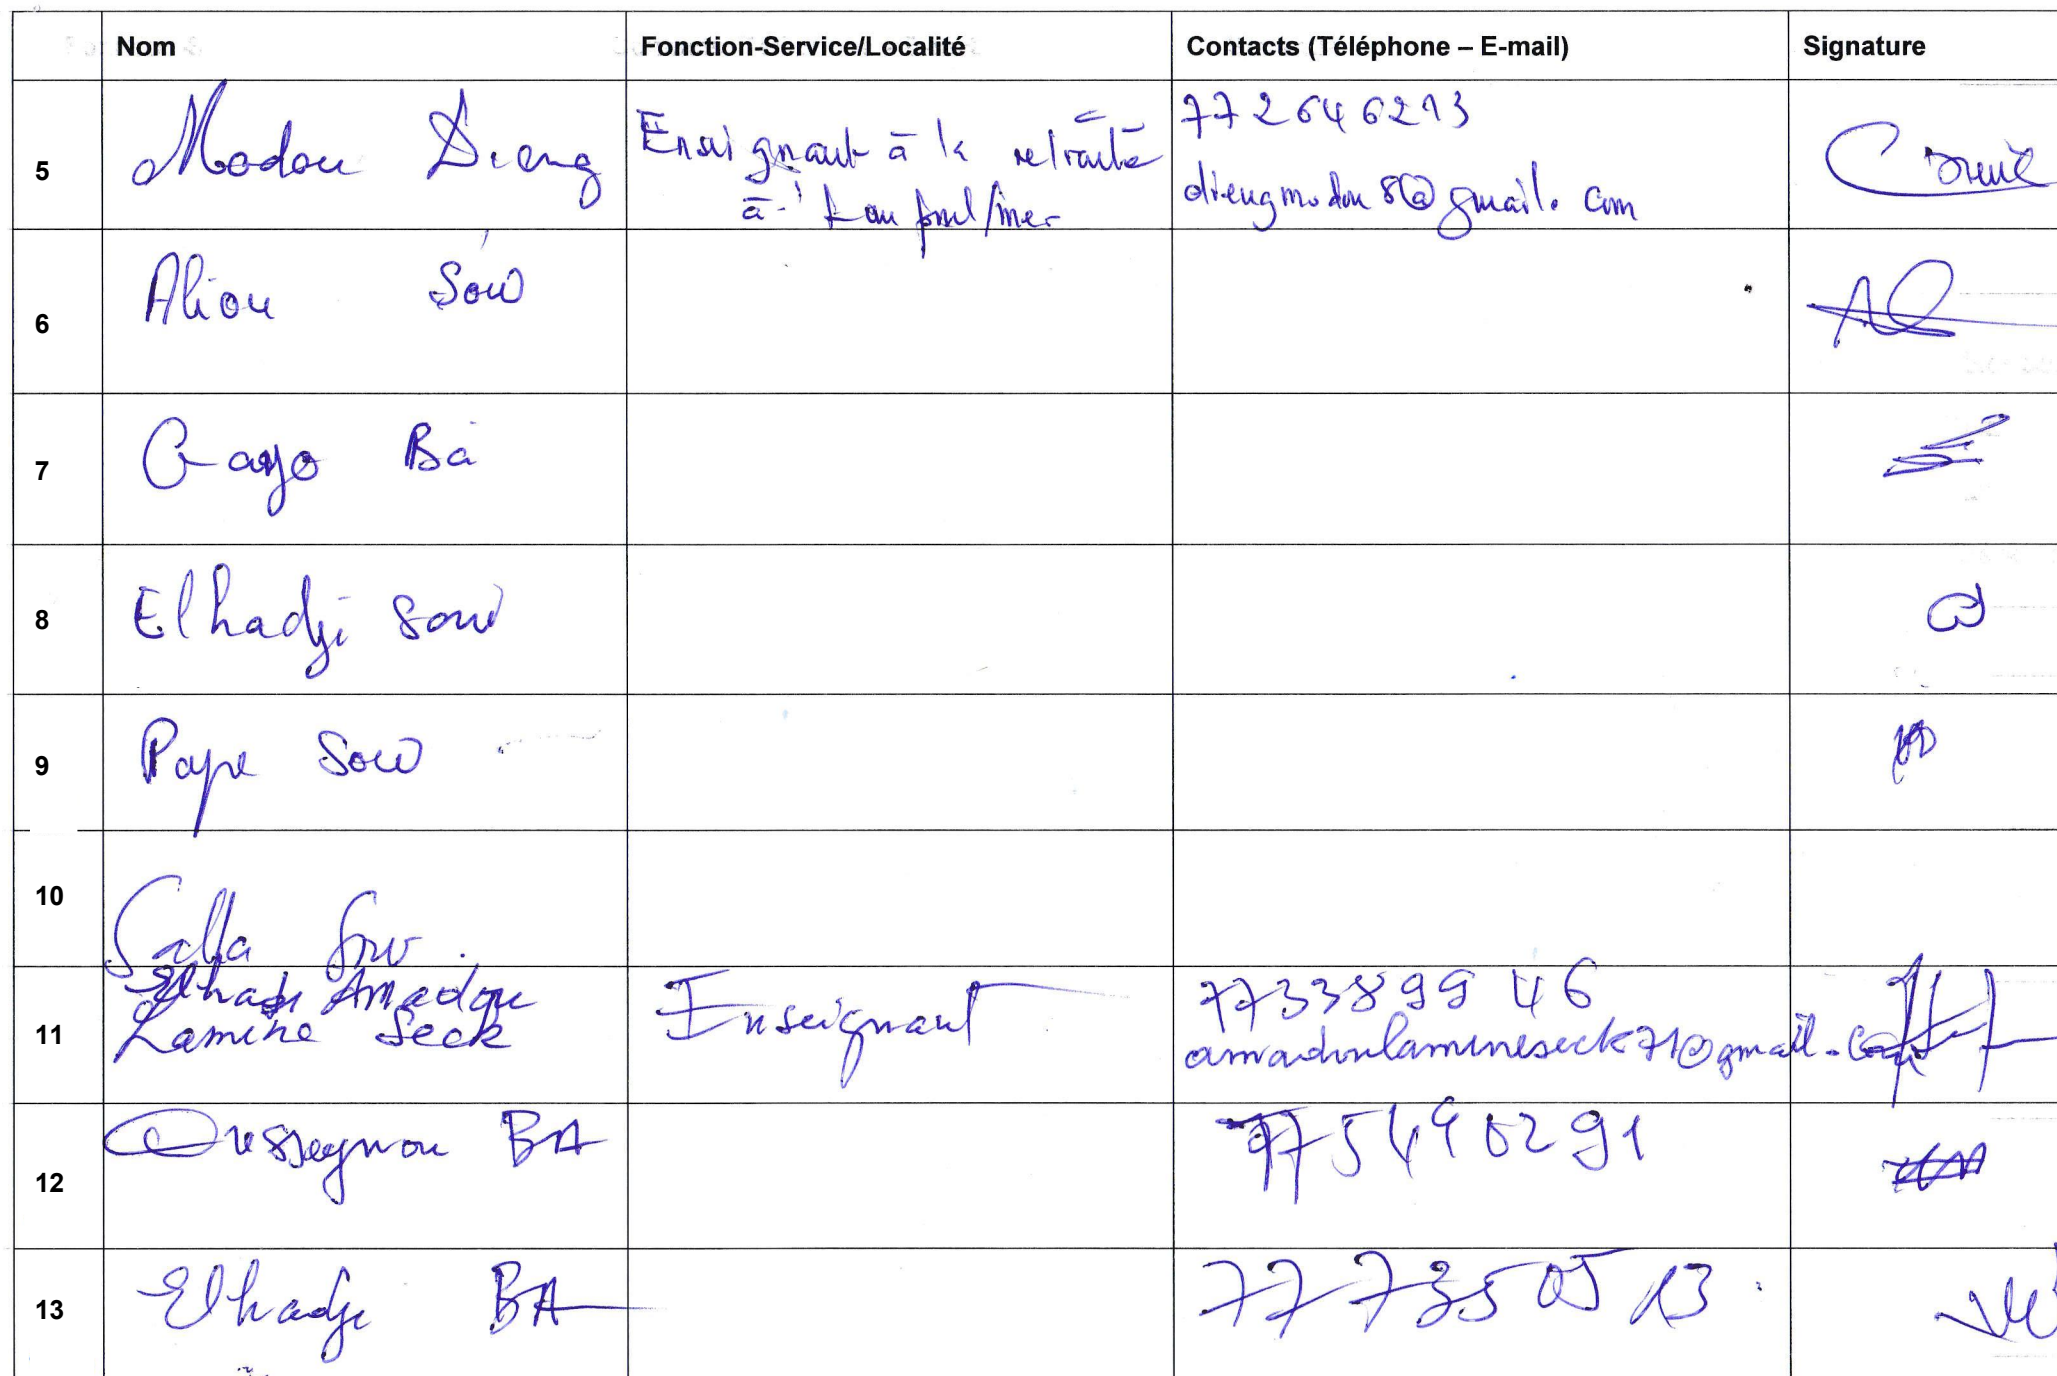 Nom Fonction-Service/Localité Contacts (Téléphone – E-mail) Signature
5 Modou Dieng Enseignant à la retraite 772646213
à fmel/mer diengmodou8@gmail.com
6 Aliou Sow
7 Gayo Ba
8 Elhadji Sow
9 Pape Sow
10 Salla Sow
11 Elhadji Amadou Enseignant 773389946
Lamine Seck amadoulamineseck71@gmail.com
12 Ousseynou BA 775490291
13 Elhadji BA 777350513